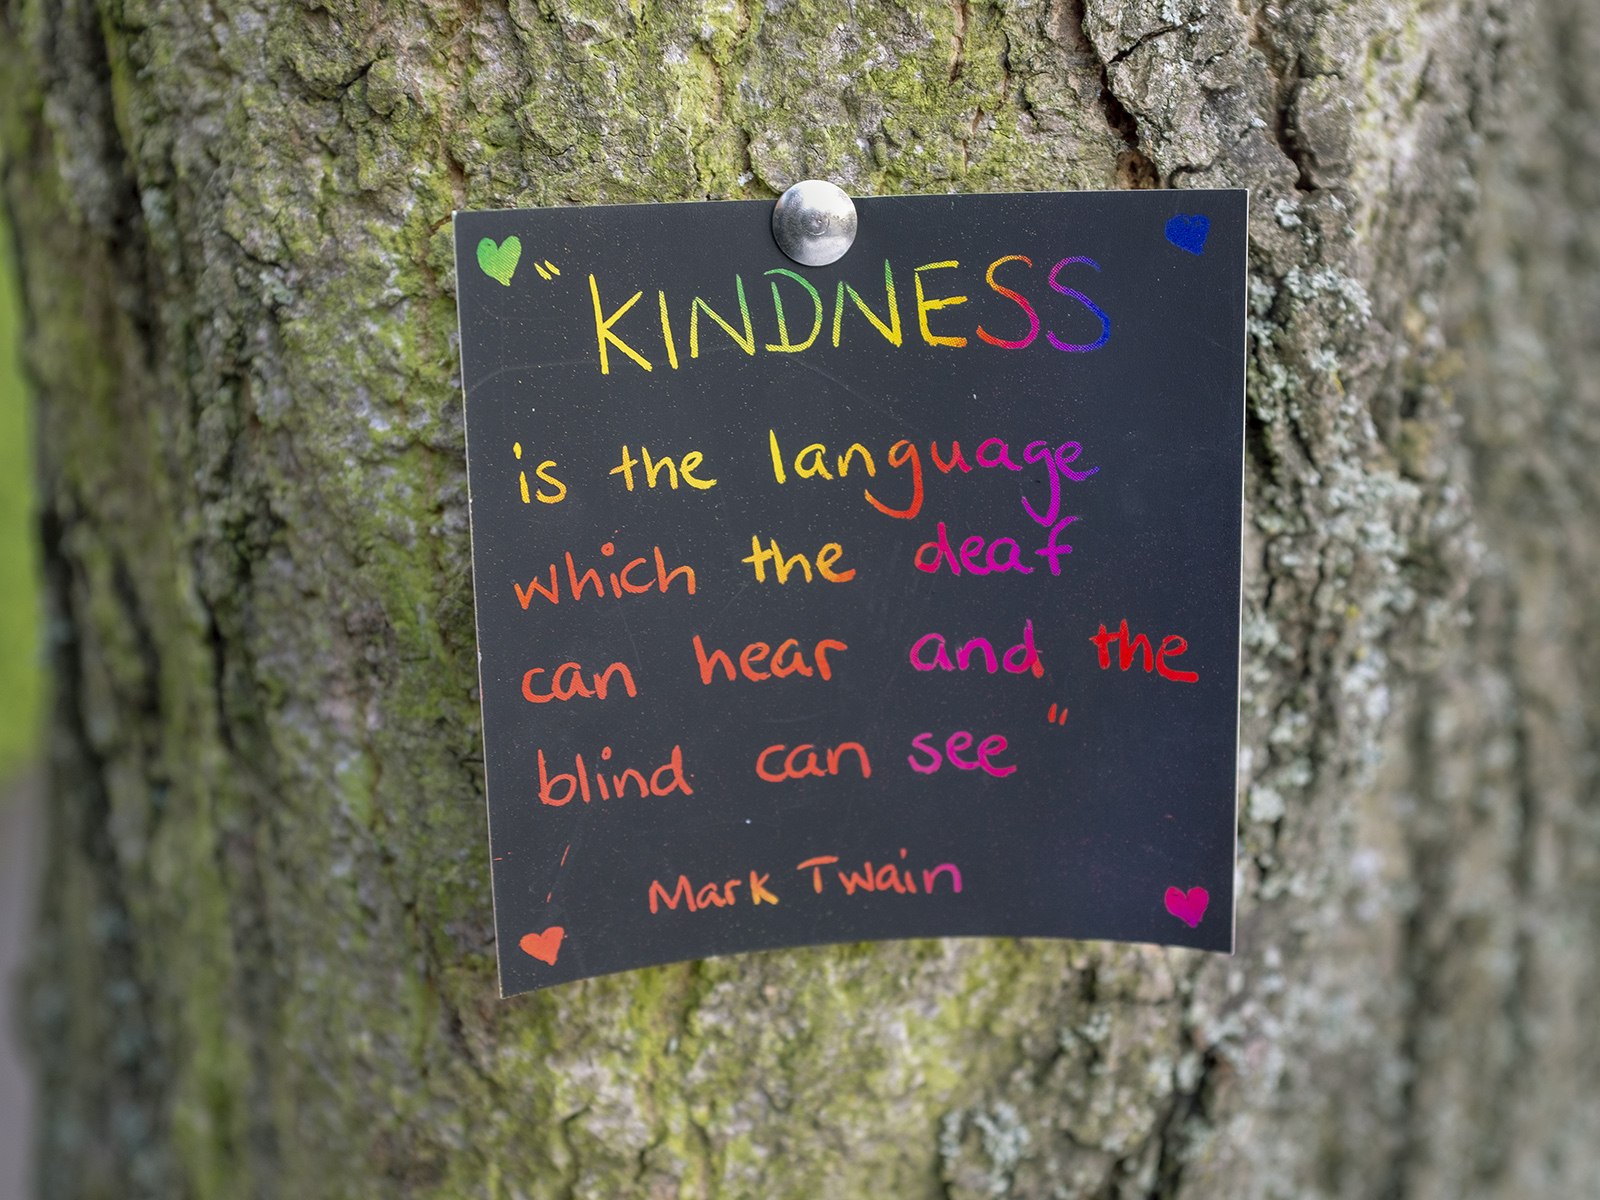 "KINDNESS
is the language
which the deaf
can hear and the
blind can see"
Mark Twain